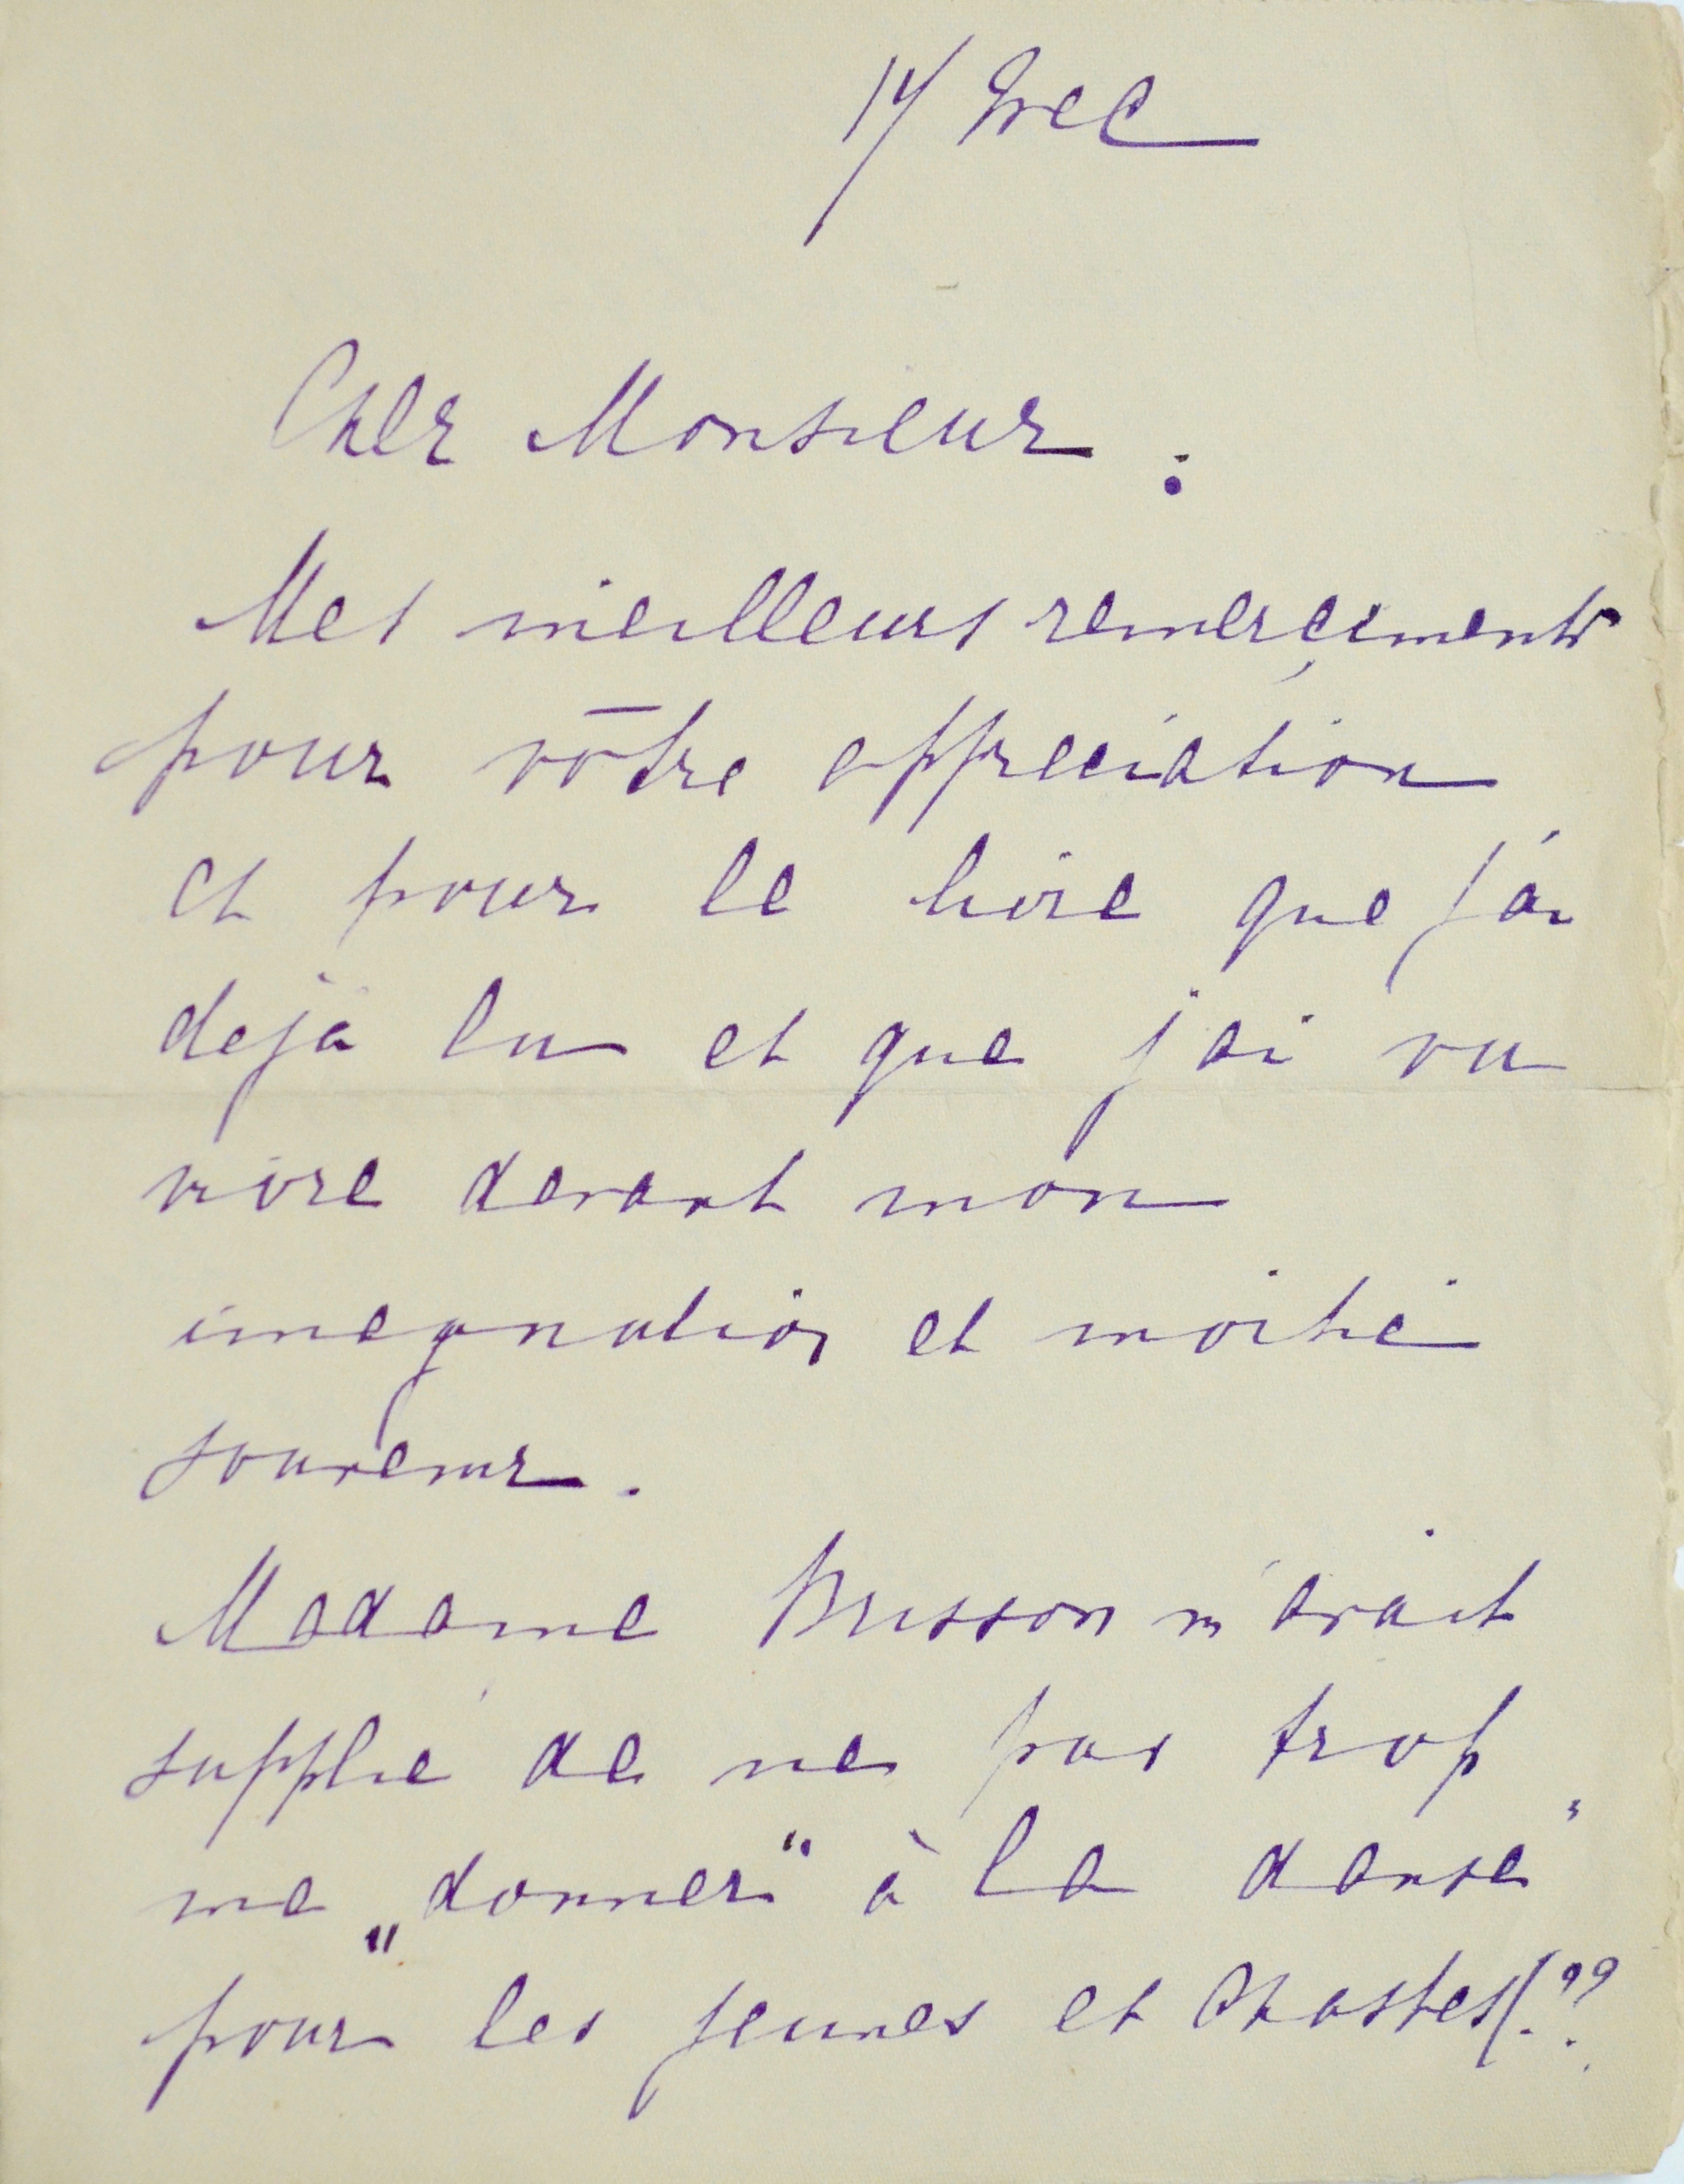 14 Dec
Cher Monsieur.
Mes meilleurs remerçiments
pour vōtre appréciation
et pour le livre que j'ai
déjà lu et que j'ai vu
vivre devant mon
imagnation et moitié
souvenir.
Madame Brisson m'avait
supplié de ne pas trop
me „donner“ à la danse
pour les jeunes et chastes!??